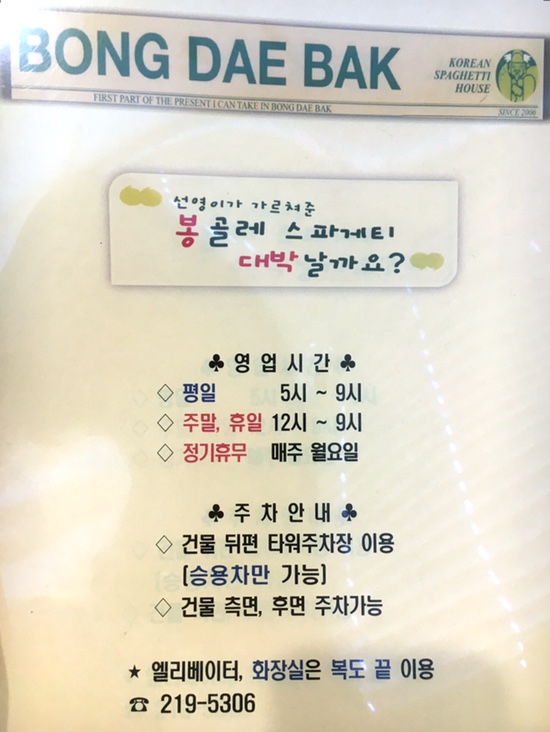 BONG DAE BAK
KOREAN
SPAGHETTI
HOUSE
FIRST PART OF THE PRESENT I CAN TAKE IN BONG DAE BAK
SINCE 2006
선영이가 가르쳐준
봉골레 스파게티
대박날까요?
♣ 영 업 시 간 ♣
◇ 평일 5시 ~ 9시
◇ 주말, 휴일 12시 ~ 9시
◇ 정기휴무 매주 월요일
♣ 주 차 안 내 ♣
◇ 건물 뒤편 타워주차장 이용
(승용차만 가능)
◇ 건물 측면, 후면 주차가능
★ 엘리베이터, 화장실은 복도 끝 이용
☎ 219-5306